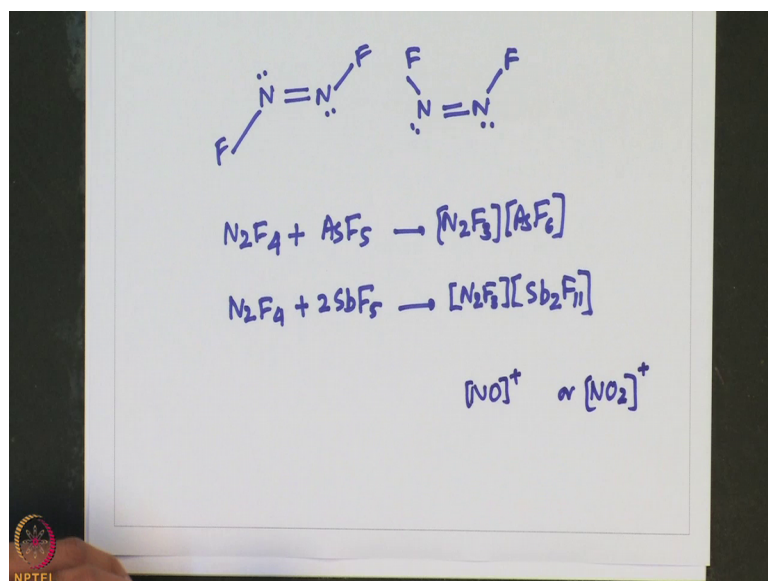 F F F
N = N N = N
F
N₂F₄ + AsF₅ → [N₂F₃][AsF₆]
N₂F₄ + 2SbF₅ → [N₂F₃][Sb₂F₁₁]
[NO]⁺ or [NO₂]⁺
NPTEL